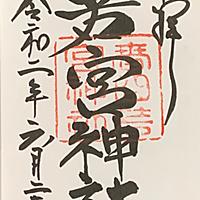 拝
若宮神社
令和二年六月二